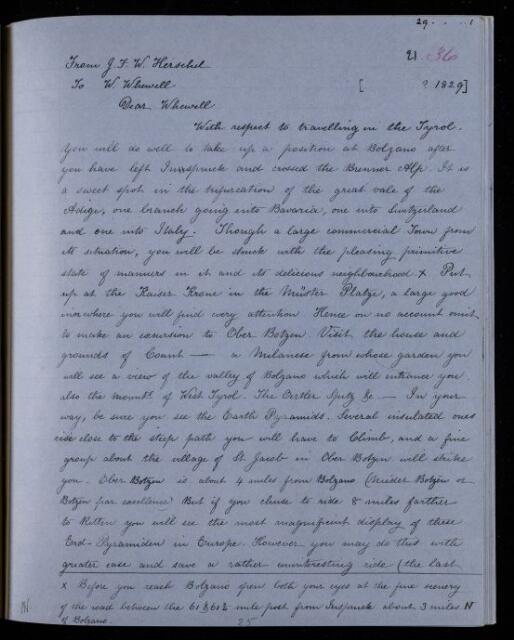 29 . . . 1
21 36
From J. F. W. Herschel
To W. Whewell [ ? 1829]
Dear Whewell
With respect to travelling in the Tyrol.
You will do well to take up a position at Bolzano after
you have left Innspruck and crossed the Brenner Alp. It is
a sweet spot in the trifurcation of the great vale of the
Adige, one branch going into Bavaria, one into Switzerland
and one into Italy. Though a large commercial Town from
its situation, you will be struck with the pleasing primitive
state of manners in it and its delicious neighbourhood x Put
up at the Kaiser Krone in the Münster Platze, a large good
inn where you will find every attention Hence on no account omit
to make an excursion to Ober Botzen. Visit the house and
grounds of Count — a Milanese from whose garden you
will see a view of the valley of Bolzano which will entrance you
also the mounts. of West Tyrol. The Ortler Spitz &c — In your
way, be sure you see the Earth Pyramids. Several insulated ones
rise close to the steep path you will have to Climb, and a fine
group about the village of St. Jacob in Ober Botzen will strike
you. Ober Botzen is about 4 miles from Bolzano (Neider Botzen or
Botzen par excellence) But if you chuse to ride 8 miles farther
to Ritten you will see the most magnificent display of these
Erd-Pyramiden in Europe. However you may do this with
greater ease and save a rather uninteresting ride (the last
x Before you reach Bolzano open both your eyes at the fine scenery
of the road between the 61 & 61½ mile post from Inspruck about 3 miles N
N of Bolzano.
25